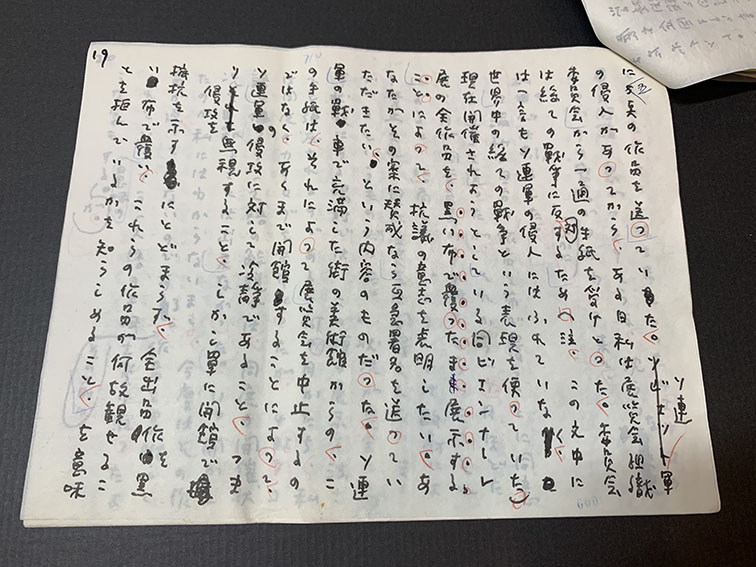 19
の作品を送っていた。ソ連軍
の侵入があってから、ある日私は展覧会組織
委員会から一通の手紙を受けとった。委員会
は総ての戦争に反対するため(注、この文中に
は一言もソ連軍の侵入にはふれていなく、
世界中の総ての戦争という表現を使っていた)
現在開催されようとしている同ビエンナーレ
展の全作品を、黒い布で覆ったまま展示する
ことによって、抗議の意志を表明したい。あ
なたがその案に賛成なら至急署名を送ってい
ただきたい、という内容のものだった。ソ連
軍の戦車で充満した街の美術館からの、こ
の手紙は、それによって展覧会を中止するの
ではなく、あくまで開館することによって、
ソ連軍の侵攻に対して冷静であること、つま
り侵攻を無視すること、しかし単に開館で
抵抗を示すにとどまらず、全出品作を黒
い布で覆い、これらの作品が何故観せるこ
とを拒んでいるかを知らしめること、を意味